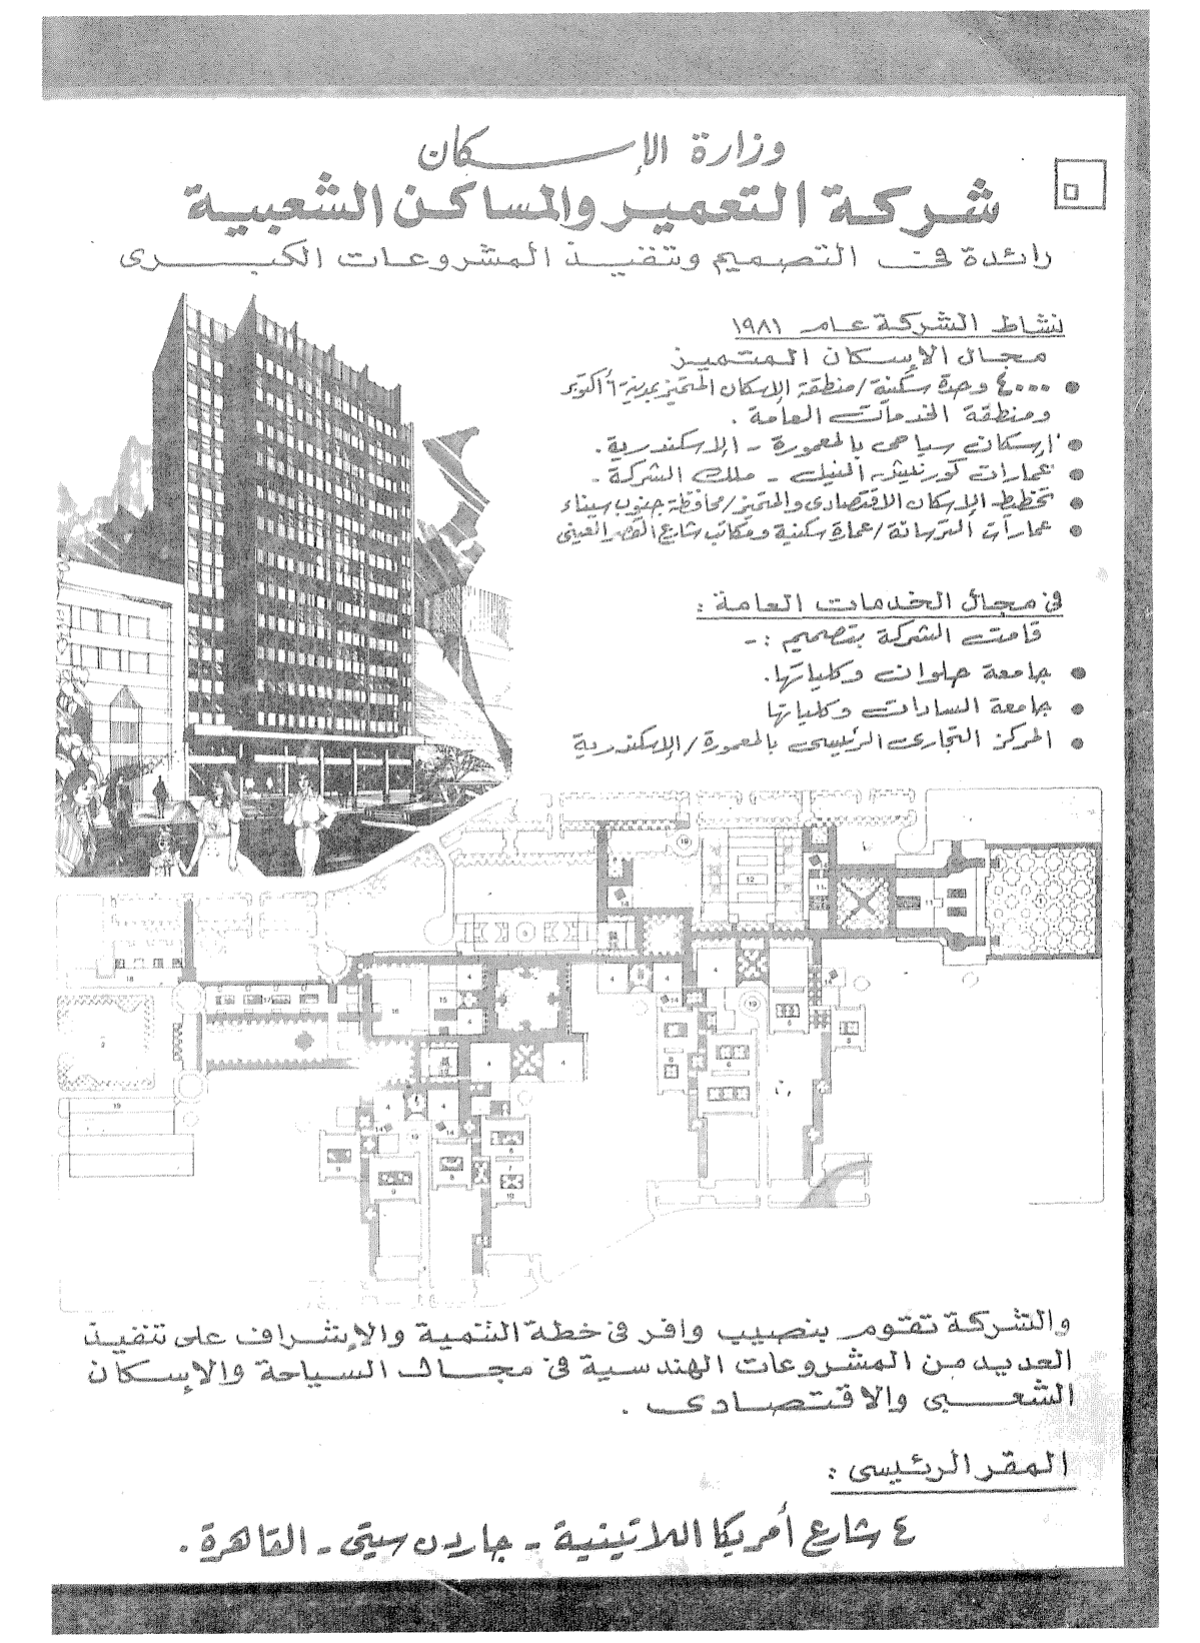 وزارة الإسكان
شركة التعمير والمساكن الشعبية
رائدة فى التصميم وتنفيذ المشروعات الكبرى
نشاط الشركة عام ١٩٨١
مجال الإسكان المتميز
● ٤٠٠٠ وحدة سكنية / منطقة الإسكان المتميز بمدينة ٦ أكتوبر
ومنطقة الخدمات العامة .
● إسكان سياحى بالمعمورة - الإسكندرية .
● عمارات كورنيش النيل - ملك الشركة -
● تخطيط الإسكان الاقتصادى والمتميز / محافظة جنوب سيناء
● عمارات الترسانة / عمارة سكنية ومكاتب شارع القصر العينى
فى مجال الخدمات العامة :
قامت الشركة بتصميم : -
● جامعة حلوان وكلياتها .
● جامعة السادات وكلياتها
● المركز التجارى الرئيسى بالمعمورة / الإسكندرية
والشركة تقوم بنصيب وافر فى خطة التنمية والإشراف على تنفيذ
العديد من المشروعات الهندسية فى مجال السياحة والإسكان
الشعبى والاقتصادى .
المقر الرئيسى :
٤ شارع أمريكا اللاتينية - جاردن سيتى - القاهرة .